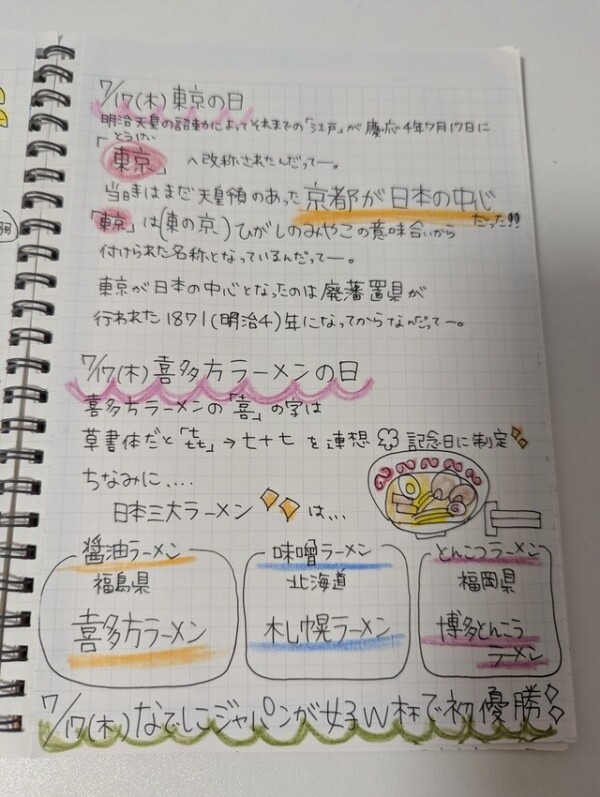 7/17(木)東京の日
明治天皇の詔勅によってそれまでの「江戸」が慶応4年7月17日に
とうけい
「東京」へ改称されたんだってー。
当時はまだ天皇領のあった京都が日本の中心
だった!!
「東京」は(東の京)ひがしのみやこの意味合いから
付けられた名称となっているんだってー。
東京が日本の中心となったのは廃藩置県が
行われた1871(明治4)年になってからなんだってー。
7/17(木)喜多方ラーメンの日
喜多方ラーメンの「喜」の字は
草書体だと「㐂」→七十七を連想 記念日に制定
ちなみに....
日本三大ラーメン は...
醤油ラーメン
福島県
喜多方ラーメン
味噌ラーメン
北海道
札幌ラーメン
とんこつラーメン
福岡県
博多とんこつ
ラーメン
7/17(木)なでしこジャパンが女子W杯で初優勝!